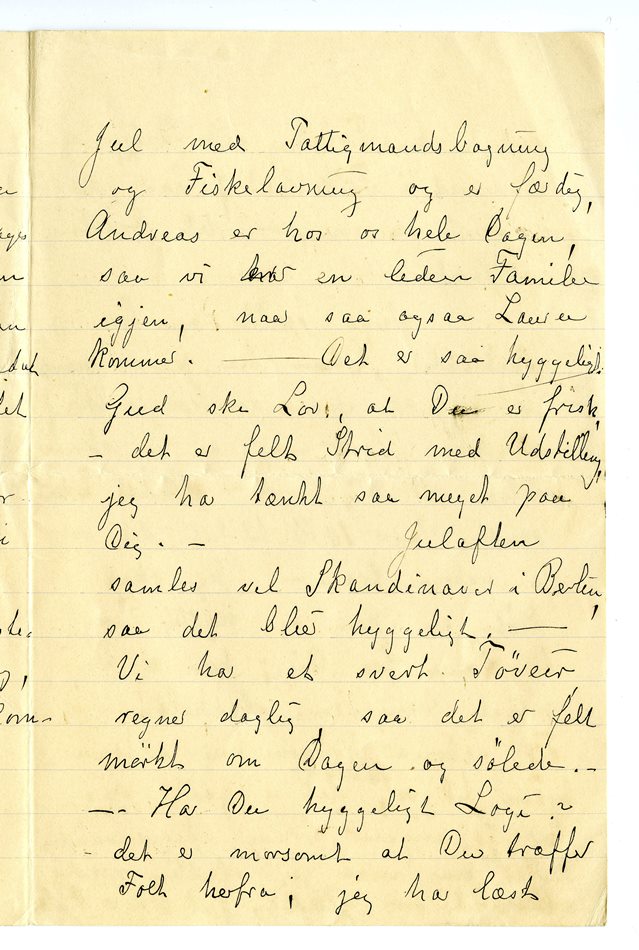 Jul med Fattigmandsbagning
og Fiskelavning og er færdig,
Andreas er hos os hele Dagen,
saa vi en liden Familie
igjen, naar saa ogsaa Laura
kommer. — Det er saa hyggeligt.
Gud ske Lov, at Du er frisk,
- det er fælt Strid med Udstilling,
jeg ha tænkt saa meget paa
Dig. - Julaften
samles vel Skandinaver i Berlin,
saa det blir hyggeligt. —
Vi ha et svært Töveir,
regner daglig, saa det er fælt
mörkt om Dagen og sölede. -
— - Ha Du hyggeligt Logi?
- det er morsomt at Du træffer
Folk herfra; jeg ha læst